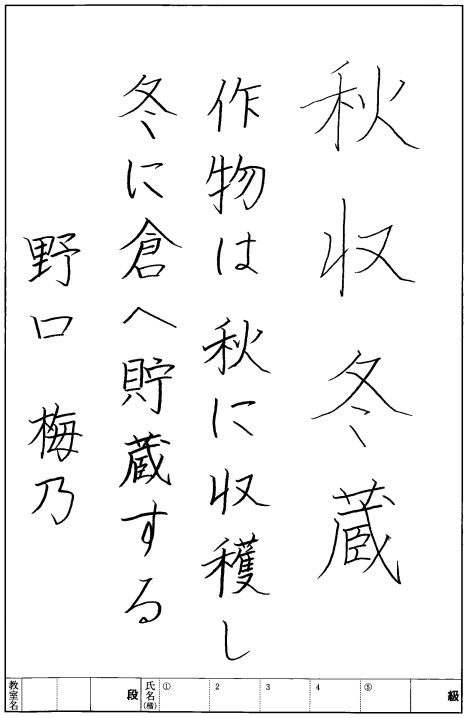 秋収冬蔵
作物は 秋に収穫し
冬に倉へ貯蔵する
野口 梅乃
教室名 段 氏名(楷) ① 2 3 4 ⑤ 級